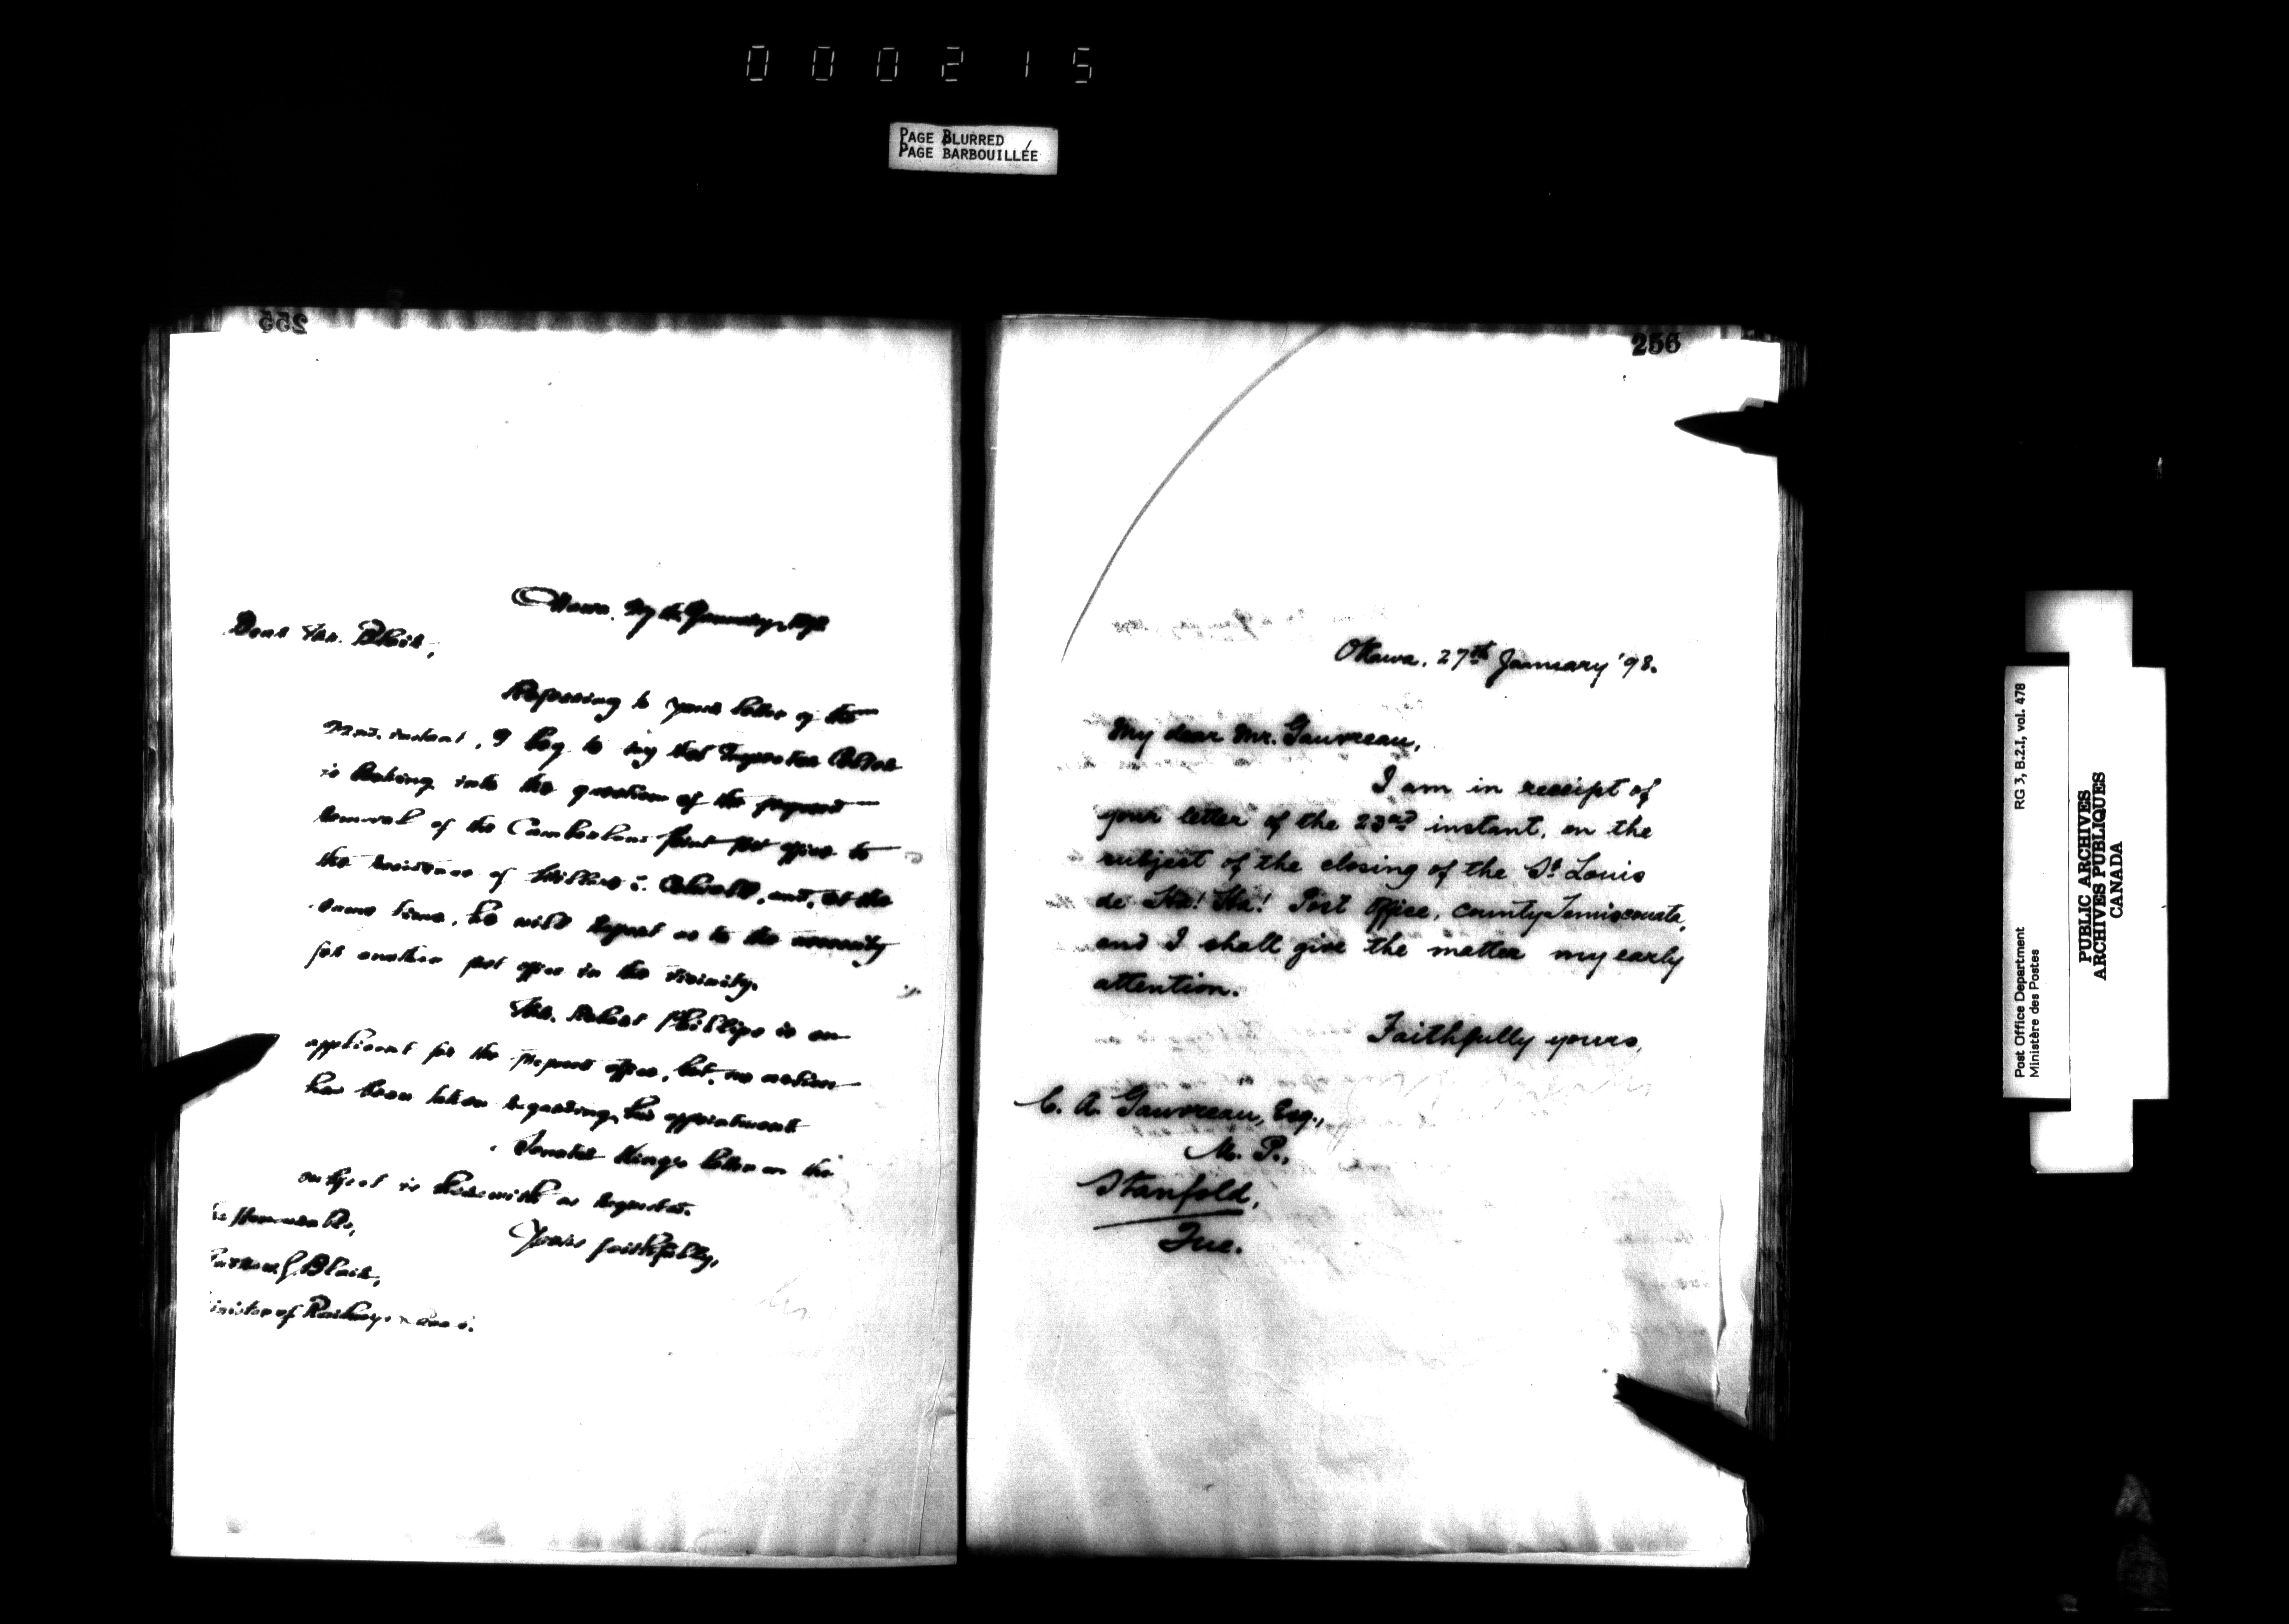 000215
PAGE BLURRED
PAGE BARBOUILLÉE
255
Ottawa, 27th January, 1898
Dear Mr. Blair,
Referring to your letter of the
22nd. instant, I beg to say that Inspector Colter
is looking into the question of the proposed
removal of the Cumberland Point post office to
the residence of C. Colwell, and, at the
same time, he will report as to the necessity
for another post office in the vicinity.
Mr. Robert Phillips is an
applicant for the present office, but, no action
has been taken regarding his appointment
Senator King's letter on the
subject is herewith as requested.
Yours faithfully,
Honourable,
G. Blair,
inister of Railways
256
Ottawa, 27th January '98.
My dear Mr. Gauvreau,
I am in receipt of
your letter of the 23rd instant, on the
subject of the closing of the St. Louis
de Ha! Ha! Post Office, county Temiscouata,
and I shall give the matter my early
attention.
Faithfully yours,
C. A. Gauvreau, Esq.,
M. P.,
Stanfold,
Que.
RG 3, B.2.I, vol. 478
Post Office Department
Ministère des Postes
PUBLIC ARCHIVES
ARCHIVES PUBLIQUES
CANADA